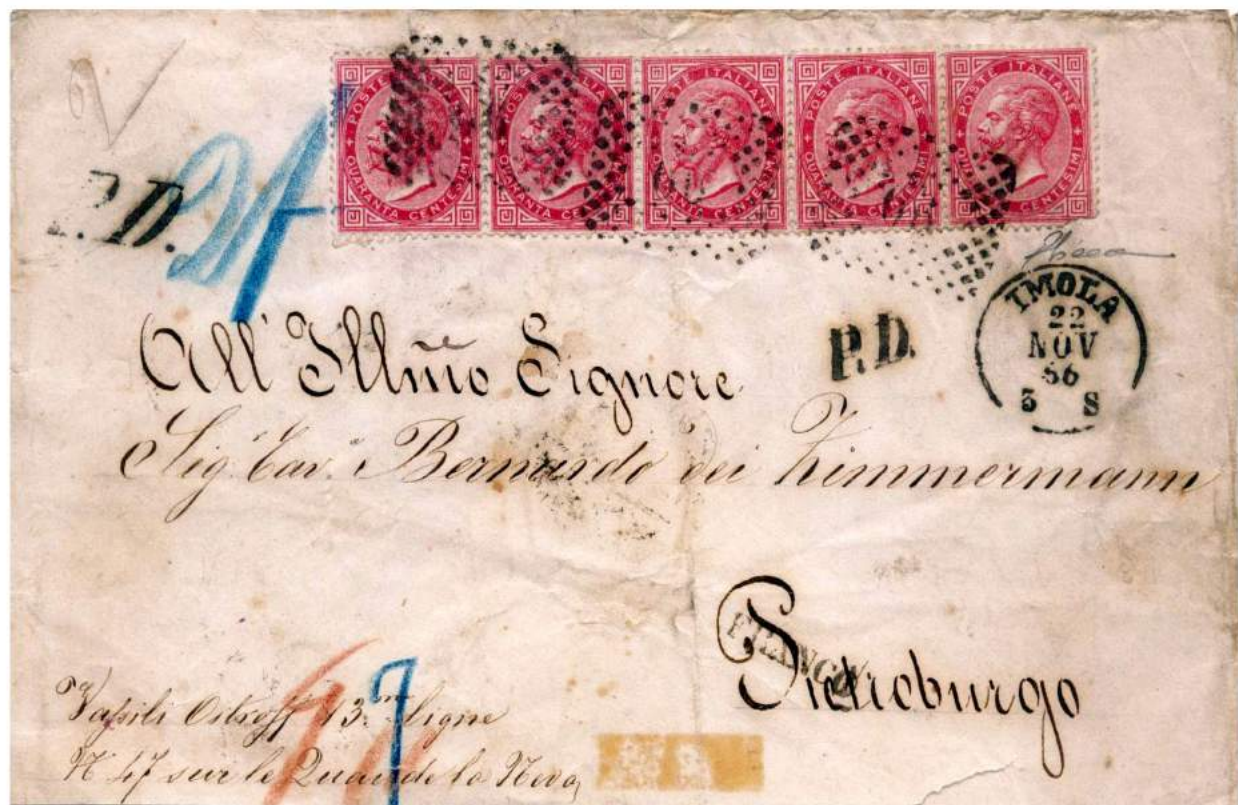 POSTE ITALIANE QUARANTA CENTESIMI
POSTE ITALIANE QUARANTA CENTESIMI
POSTE ITALIANE QUARANTA CENTESIMI
POSTE ITALIANE QUARANTA CENTESIMI
POSTE ITALIANE QUARANTA CENTESIMI
P.D.
IMOLA
22
NOV
66
3 S
P.D.
All' Illmo Signore
Sig. Cav. Bernardo dei Zimmermann
Pietroburgo
FRANCO
Vasili Ostroff 13.me ligne
N 47 sur le Quai de la Neva